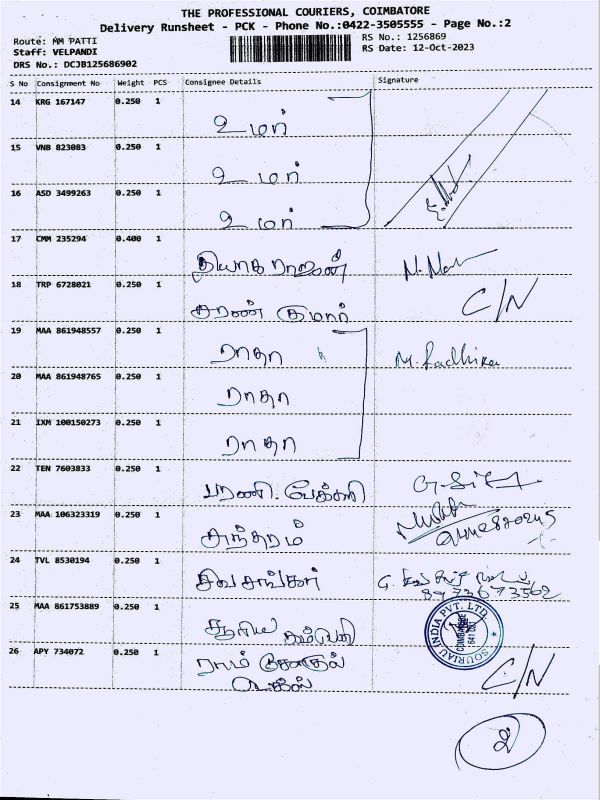 THE PROFESSIONAL COURIERS, COIMBATORE
Delivery Runsheet - PCK - Phone No.:0422-3505555 - Page No.:2
Route: MM PATTI
RS No.: 1256869
Staff: VELPANDI
RS Date: 12-Oct-2023
DRS No.: DCJB125686902
S No Consignment No Weight PCS Consignee Details Signature
14 KRG 167147 0.250 1 உமர்
15 VNB 823083 0.250 1 உமர்
16 ASD 3499263 0.250 1 உமர்
17 CMM 235294 0.400 1 தியாகராஜன்
18 TRP 6728021 0.250 1 சரண் குமார் C/N
19 MAA 861948557 0.250 1 ராதா M. Radhika
20 MAA 861948765 0.250 1 ராதா
21 IXM 100150273 0.250 1 ராதா
22 TEN 7603833 0.250 1 பரணி.
23 MAA 106323319 0.250 1
24 TVL 8530194 0.250 1 சிவசங்கர்
8973673562
25 MAA 861753889 0.250 1
SOURIAU INDIA PVT. LTD.
COIMBATORE
26 APY 734072 0.250 1 ராம் C/N
2